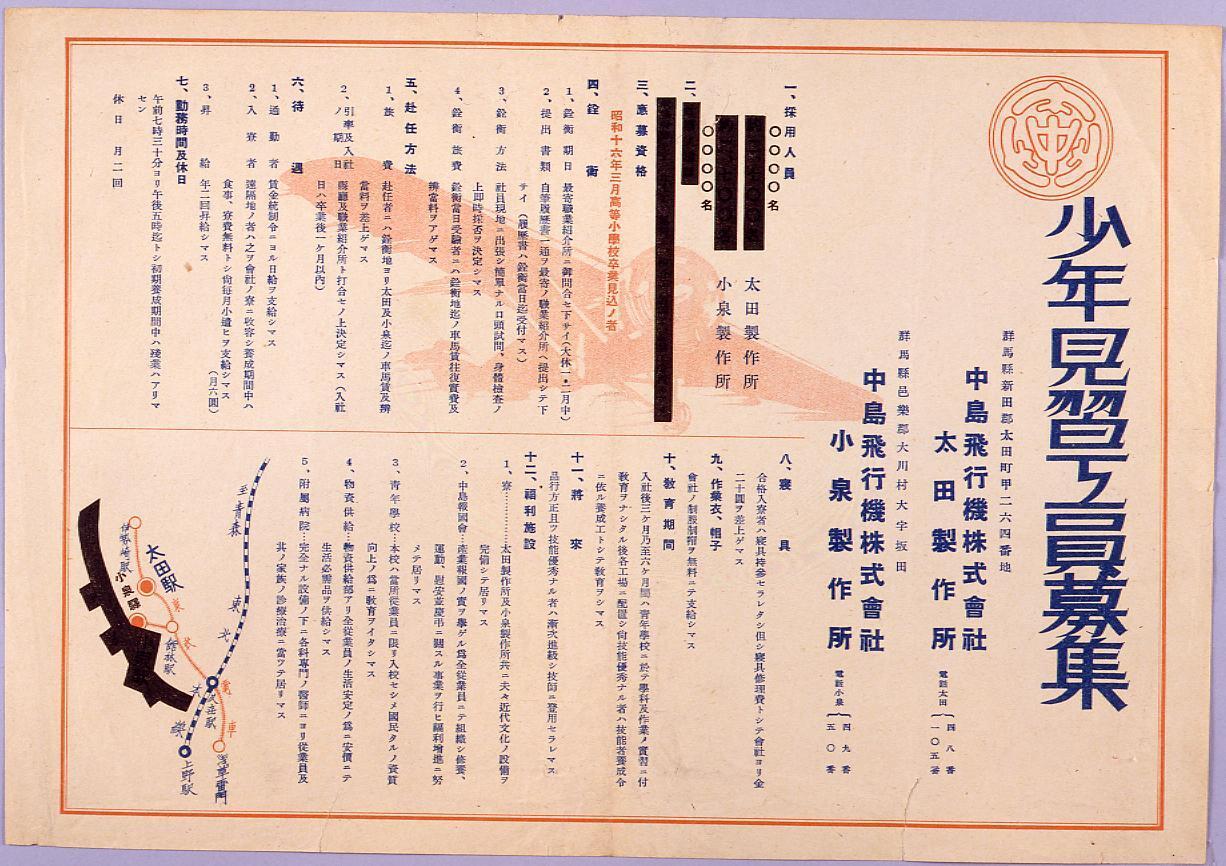 中
少年見習工員募集
群馬縣新田郡太田町甲二六四番地
中島飛行機株式會社
太田製作所
電話太田 四八番 一〇五番
群馬縣邑樂郡大川村大字坂田
中島飛行機株式會社
小泉製作所
電話小泉 四九番 五〇番
一、採用人員
〇〇〇〇名
太田製作所
小泉製作所
〇〇〇〇名
二、
三、應募資格
昭和十六年三月高等小學校卒業見込ノ者
四、銓衡
1、銓衡期日 最寄職業紹介所ニ御問合セ下サイ(大休一・二月中)
2、提出書類 自筆履歷書一通ヲ最寄ノ職業紹介所ヘ提出シテ下
サイ(履歷書ハ銓衡當日迄受付マス)
3、銓衡方法 社員現地ニ出張シ簡單ナル口頭試問、身體檢査ノ
上卽時採否ヲ決定シマス
4、銓衡旅費 銓衡當日受驗者ニハ銓衡地迄ノ車馬賃往復實費及
辨當料ヲアゲマス
五、赴任方法
1、旅費 赴任者ニハ銓衡地ヨリ太田及小泉迄ノ車馬賃及辨
當料ヲ差上ゲマス
2、引率及入社ノ期日 縣廳及職業紹介所ト打合セノ上決定シマス(入社
日ハ卒業後一ケ月以內)
六、待遇
1、通勤者 賃金統制令ニヨル日給ヲ支給シマス
2、入寮者 遠隔地ノ者ハ之ヲ會社ノ寮ニ收容シ養成期間中ハ
食事、寮費無料トシ尙每月小遣ヒヲ支給シマス
(月六圓)
3、昇給 年二回昇給シマス
七、勤務時間及休日
午前七時三十分ヨリ午後五時迄トシ初期養成期間中ハ殘業ハアリマ
セン
休日 月二回
八、寢具
合格入寮者ハ寢具持參セラレタシ但シ寢具修理費トシテ會社ヨリ金
二十圓ヲ差上ゲマス
九、作業衣、帽子
會社ノ制服制帽ヲ無料ニテ支給シマス
十、敎育期間
入社後三ケ月乃至六ケ月間ハ靑年學校ニ於テ學科及作業ノ實習ニ付
敎育ヲナシタル後各工場ニ配置シ尙技能優秀ナル者ハ技能者養成令
ニ依ル養成工トシテ敎育ヲシマス
十一、將來
品行方正且ツ技能優秀ナル者ハ漸次進級シ技師ニ登用セラレマス
十二、福利施設
1、寮…………太田製作所及小泉製作所共ニ夫々近代文化ノ設備ヲ
完備シテ居リマス
2、中島報國會…產業報國ノ實ヲ擧ゲル爲全從業員ニテ組織シ修養、
運動、慰安並慶弔ニ關スル事業ヲ行ヒ福利增進ニ努
メテ居リマス
3、靑年學校…本校ハ當所從業員ニ限リ入校セシメ國民タルノ資質
向上ノ爲ニ敎育ヲイタシマス
4、物資供給…物資供給部アリ全從業員ノ生活安定ノ爲ニ安價ニテ
生活必需品ヲ供給シマス
5、附屬病院…完全ナル設備ノ下ニ各科專門ノ醫師ニヨリ從業員及
其ノ家族ノ診療治療ニ當ツテ居リマス
至靑森
東北本線
東武電車
伊勢崎驛
太田駅
小泉驛
館林駅
久喜駅
浅草雷門
上野駅